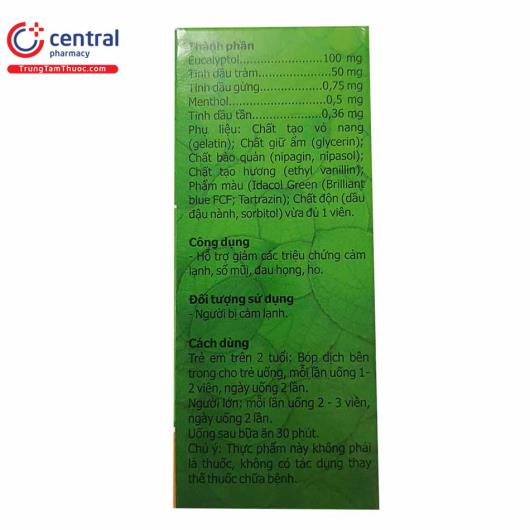 central
pharmacy
TrungTamThuoc.com
Thành phần
Eucalyptol.......................100 mg
Tinh dầu tràm.....................50 mg
Tinh dầu gừng..................0,75 mg
Menthol...........................0,5 mg
Tinh dầu tần....................0,36 mg
Phụ liệu: Chất tạo vỏ nang
(gelatin); Chất giữ ẩm (glycerin);
Chất bảo quản (nipagin, nipasol);
Chất tạo hương (ethyl vanillin);
Phẩm màu (Idacol Green (Brilliant
blue FCF; Tartrazin); Chất độn (dầu
đậu nành, sorbitol) vừa đủ 1 viên.
Công dụng
- Hỗ trợ giảm các triệu chứng cảm
lạnh, sổ mũi, đau họng, ho.
Đối tượng sử dụng
- Người bị cảm lạnh.
Cách dùng
Trẻ em trên 2 tuổi: Bóp dịch bên
trong cho trẻ uống, mỗi lần uống 1-
2 viên, ngày uống 2 lần.
Người lớn: mỗi lần uống 2 - 3 viên,
ngày uống 2 lần.
Uống sau bữa ăn 30 phút.
Chú ý: Thực phẩm này không phải
là thuốc, không có tác dụng thay
thế thuốc chữa bệnh.